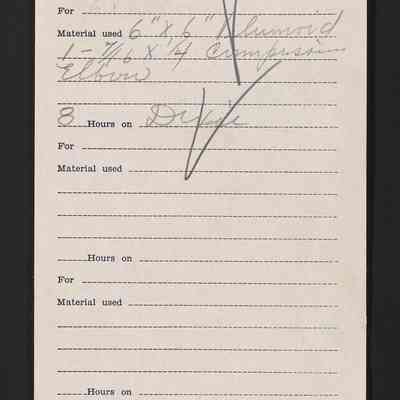 For
Material used 6" X 6" Plumoid
1 - 7/16 X 4 Compression
Elbow
8 Hours on Dixie
For
Material used
Hours on
For
Material used
Hours on